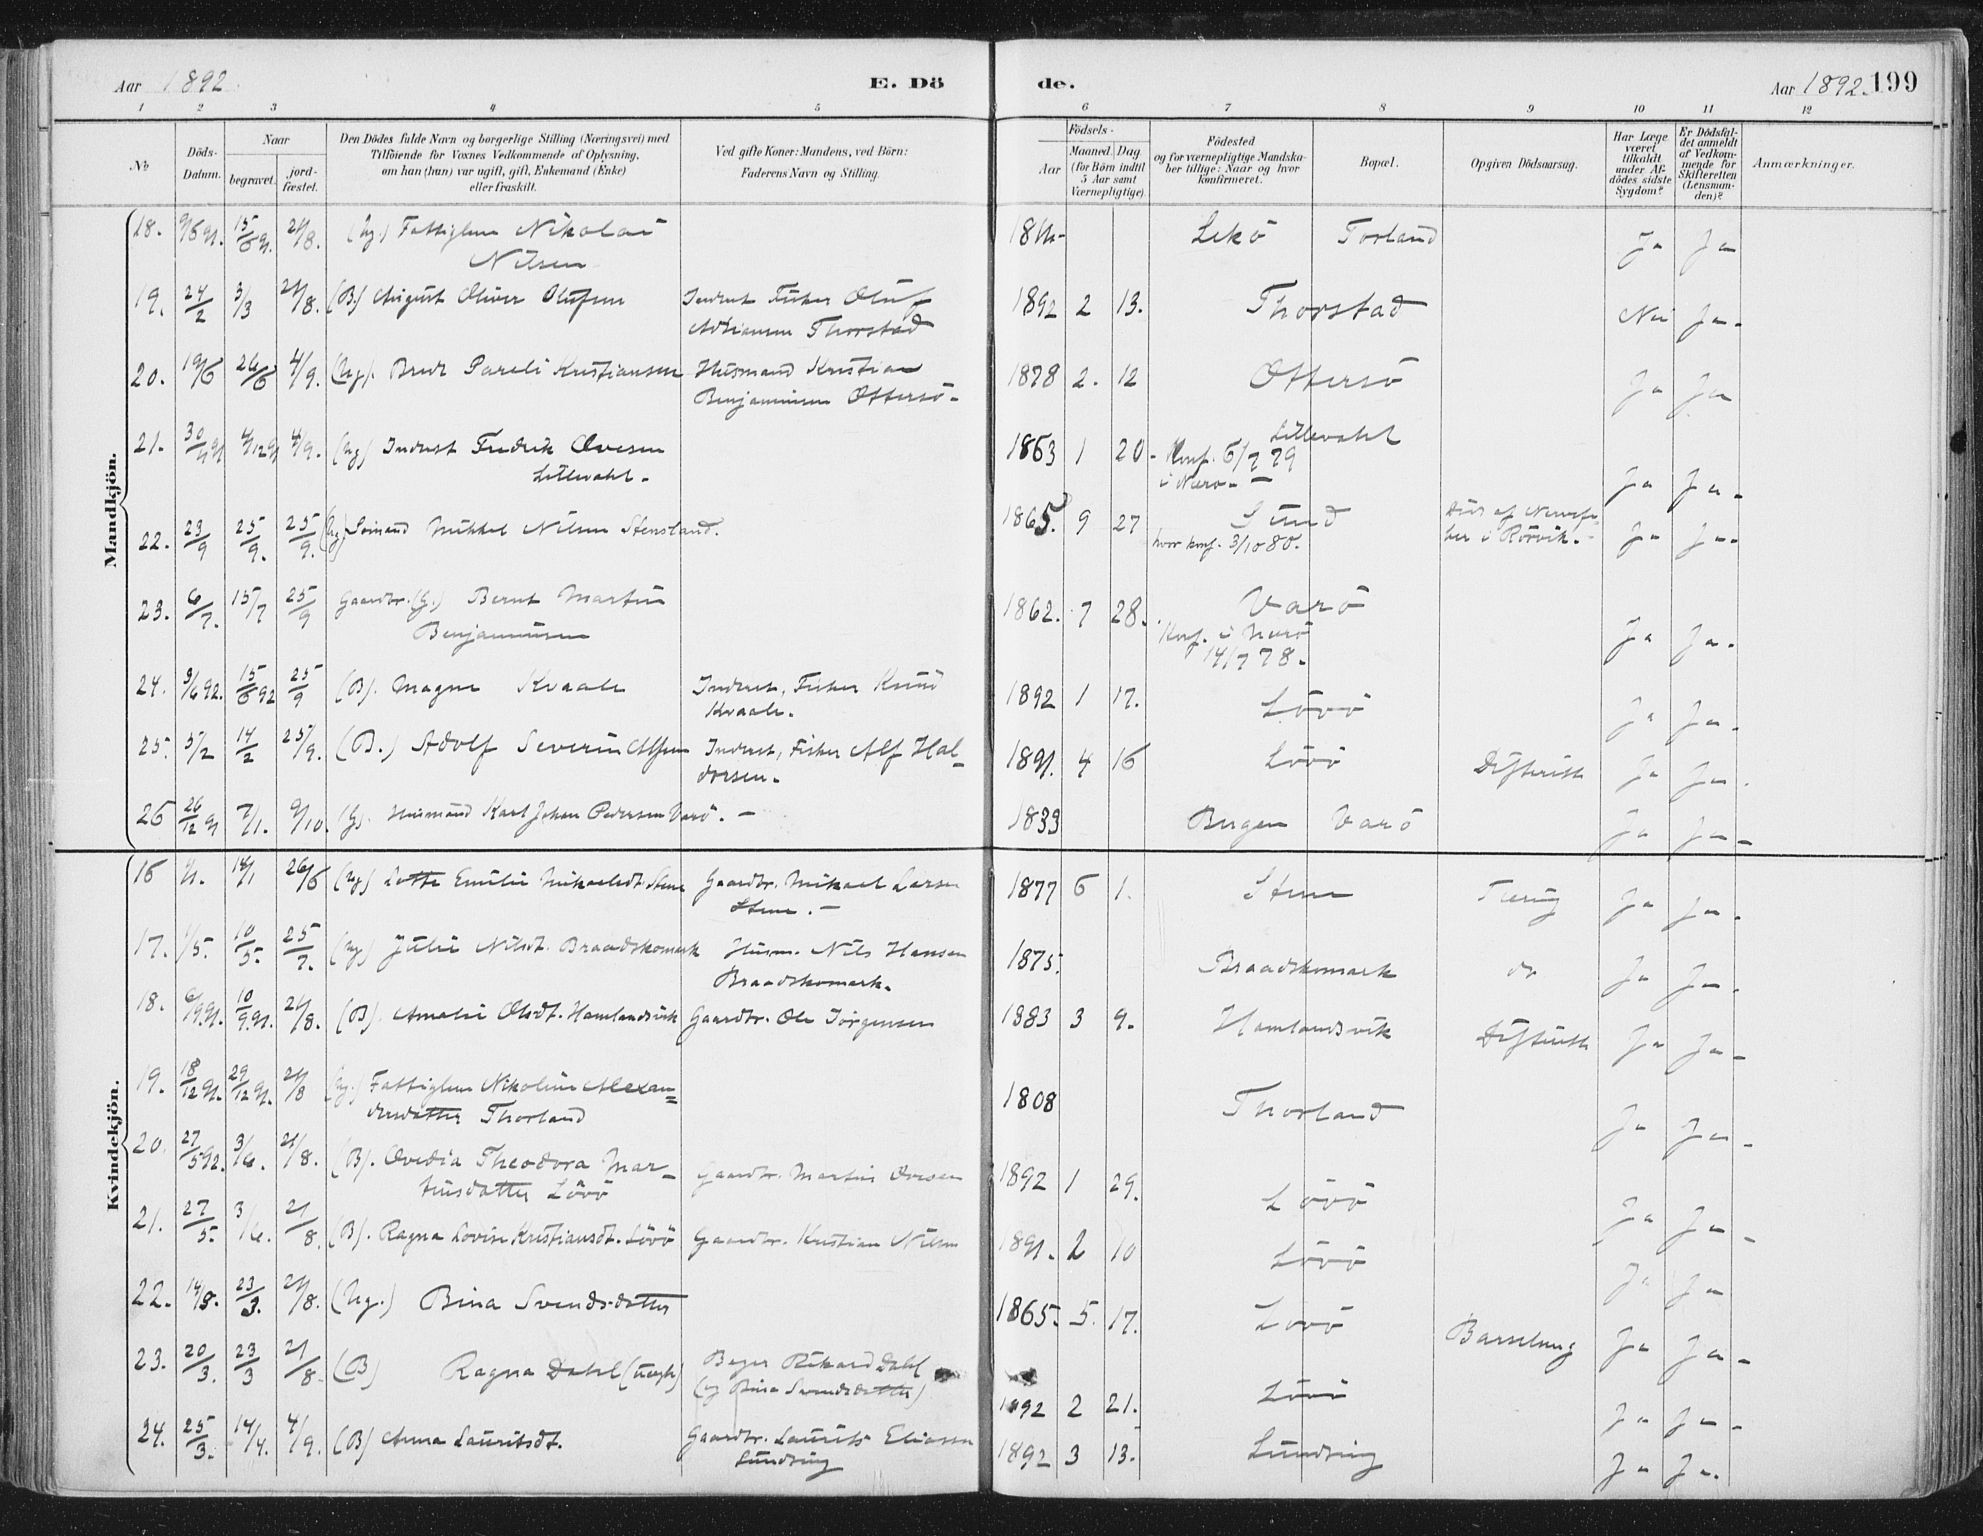 Aar 1892. E. Dö de. Aar 1892. 199
1 2 3 4 5 6 7 8 9 10 11 12
No
Döds-
Datum.
Naar
begravet.
jord-
fæstet.
Den Dödes fulde Navn og borgerlige Stilling (Næringsvei) med
Tilföiende for Voxnes Vedkommende af Oplysning,
om han (hun) var ugift, gift, Enkemand (Enke)
eller fraskilt.
Ved gifte Koner: Mandens, ved Börn:
Faderens Navn og Stilling.
Födsels-
Aar
Maaned. Dag
(for Börn indtil
5 Aar samt
Værnepligtige).
Födested
og for værnepligtige Mandska-
ber tillige: Naar og hvor
konfirmeret.
Bopæl.
Opgiven Dödsaarsag.
Har Læge
været
tilkaldt
under Af-
dödes sidste
Sygdom?
Er Dödsfal-
det anmeldt
af Vedkom-
mende for
Skifteretten
(Lensman-
den)?
Anmærkninger.
Mandkjön.
18. 15/6 91. 21/8. (Ug.) Fattiglem Nikolai Lekö Torland Ja Ja
Nilsen
19. 24/2 3/3 21/8. (B) August Oliver Olufsen Inderst Fisker Oluf 1892 2 13. Thorstad Nei Ja.
Adriansen Thorstad
20. 19/6 26/6 4/9. (Ug). Bernt Pareli Kristiansen Husmand Kristian 1878 2. 12 Ottersö Ja Ja
Benjaminsen Ottersö.
21. 30/11 91 4/12 91 4/9. (Ug) Inderst Fredrik Ovesen 1863 1 20. Lillevahl
Lillevahl. Konf. 6/7 79
i Nærö. Ja Ja.
22. 23/9 25/9. 25/9. (Ug) Sömand Mikkel Nilsen Stensland. 1865. 9 27 Sund Död af Nervefe-
hvor konf. 3/10 80. ber i Rörvik. Ja Ja.
23. 6/7. 15/7 25/9 Gaardbr. (G.) Bernt Martin 1862. 7 28. Varö
Benjaminsen Konf. i Nærö
14/7 78. Ja Ja.
24. 3/6 92. 15/6 92 25/9 (B). Magne Kvaale Inderst, Fisker Knud 1892 1 17. Lövö Ja Ja.
Kvaale.
25. 5/2 14/2 25/9. (B.) Adolf Severin Alfsen Inderst, Fisker Alf Hal- 1891. 4 16 Lövö Difterith Ja Ja.
dorsen.
26 26/12 91 7/1. 9/10. (G). Husmand Karl Johan Pedersen Varö. 1833 Bergen Varö Ja Ja
Kvindekjön.
16 14/1 26/6 (Ug) Lotte Emilie Mikaelsdt. Stene Gaardbr. Mikael Larsen 1877 6 1. Stene Tæring Ja Ja.
Stene.
17. 1/5. 10/5. 25/7. (Ug) Julie Nilsdt. Braadskomark Husm. Nils Hansen 1875. Braadskomark do Ja Ja.
Braadskomark.
18. 6/9 91. 10/9 91. 21/8. (B). Amalie Olsdt. Hamlandsvik Gaardbr. Ole Jörgensen 1883 3 9. Hamlandsvik Difterith Ja Ja
19. 18/12 91. 29/12 91. 21/8 (Ug.) Fattiglem Nikoline Alexan- 1808 Thorland Ja Ja
dersdatter Thorland
20. 27/5 92. 3/6. 21/8. (B). Ovedia Theodora Mar- Gaardbr. Martin Ovesen 1892 1 29. Lövö Ja Ja
tinsdatter Lövö
21. 27/5. 3/6. 21/8. (B). Ragna Lovise Kristiansdt. Lövö Gaardbr. Kristian Nilsen 1891. 2 10 Lövö Ja Ja
22. 14/3. 23/3. 21/8. (Ug.) Bina Svendsdatter 1865. 5. 17. Lövö Barselseng Ja Ja
23. 20/3. 23/3 21/8. (B) Ragna Dahl (uægte) Bager Rikard Dahl 1892 2 21. Lövö Ja Ja
(og Bina Svendsdatter)
24. 25/3. 14/4. 4/9. (B) Anna Lauritsdt. Gaardbr. Laurits Eliassen 1892 3 13. Lundring Ja Ja.
Lundring